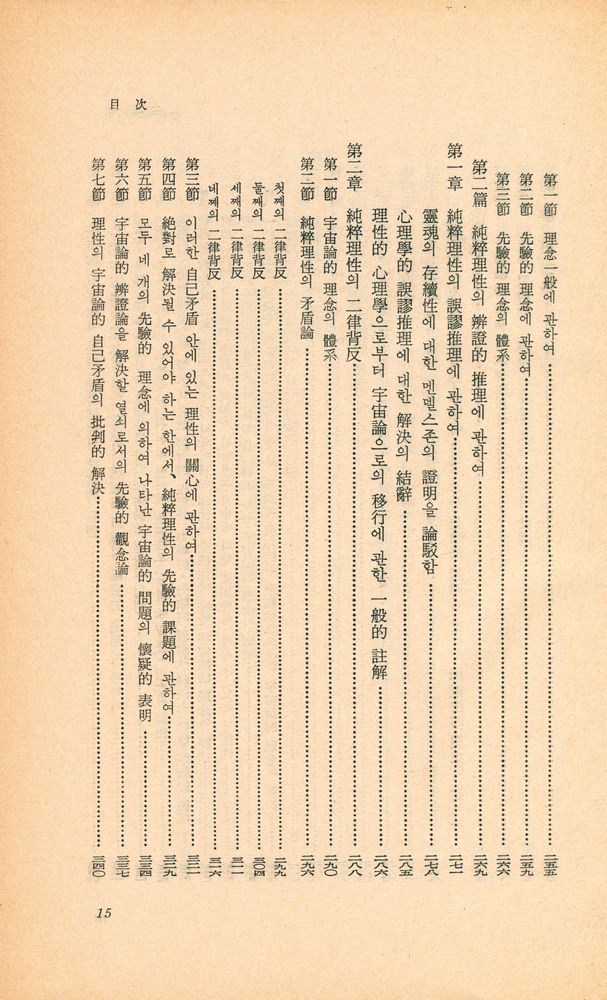 目次
第一節 理念一般에 관하여 二五五
第二節 先驗的 理念에 관하여 二五九
第三節 先驗的 理念의 體系 二六六
第二篇 純粹理性의 辨證的 推理에 관하여 二六九
第一章 純粹理性의 誤謬推理에 관하여 二七一
靈魂의 存續性에 대한 멘델스존의 證明을 論駁함 二七八
心理學的 誤謬推理에 대한 解決의 結辭 二八五
理性的 心理學으로부터 宇宙論으로의 移行에 관한 一般的 註解 二八六
第二章 純粹理性의 二律背反 二八八
第一節 宇宙論的 理念의 體系 二九〇
第二節 純粹理性의 矛盾論 二九六
첫째의 二律背反 二九九
둘째의 二律背反 三〇四
세째의 二律背反 三一一
네째의 二律背反 三一六
第三節 이러한 自己矛盾 안에 있는 理性의 關心에 관하여 三二一
第四節 絶對로 解決될 수 있어야 하는 한에서、純粹理性의 先驗的 課題에 관하여 三二九
第五節 모두 네 개의 先驗的 理念에 의하여 나타난 宇宙論的 問題의 懷疑的 表明 三三四
第六節 宇宙論的 辨證論을 解決할 열쇠로서의 先驗的 觀念論 三三七
第七節 理性의 宇宙論的 自己矛盾의 批判的 解決 三四〇
15